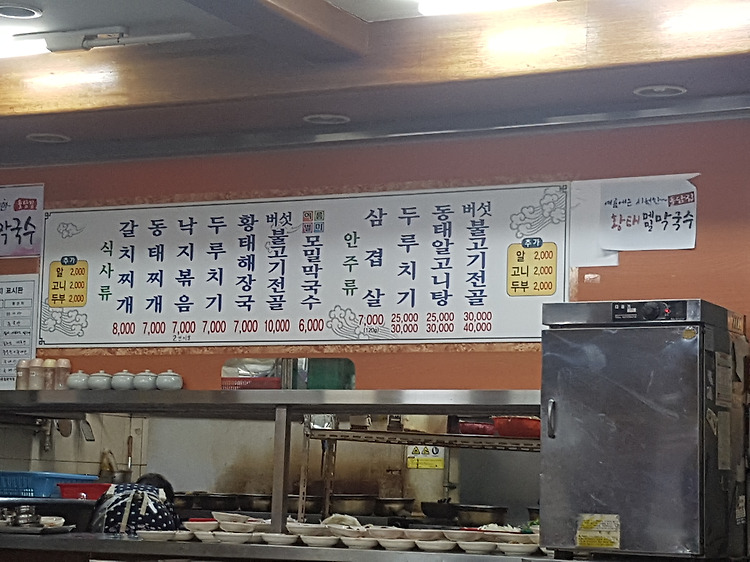 막국수
추가
알 2,000
고니 2,000
두부 2,000
식사류
갈치찌개 8,000
동태찌개 7,000
낙지볶음 7,000
두루치기 7,000
황태해장국 7,000
버섯불고기전골 10,000
여름별미
모밀막국수 6,000
안주류
삼겹살 7,000
(120g)
두루치기 25,000 30,000
동태알고니탕 25,000 30,000
버섯불고기전골 30,000 40,000
추가
알 2,000
고니 2,000
두부 2,000
여름에는 시원한~
황태 메밀막국수
표시판